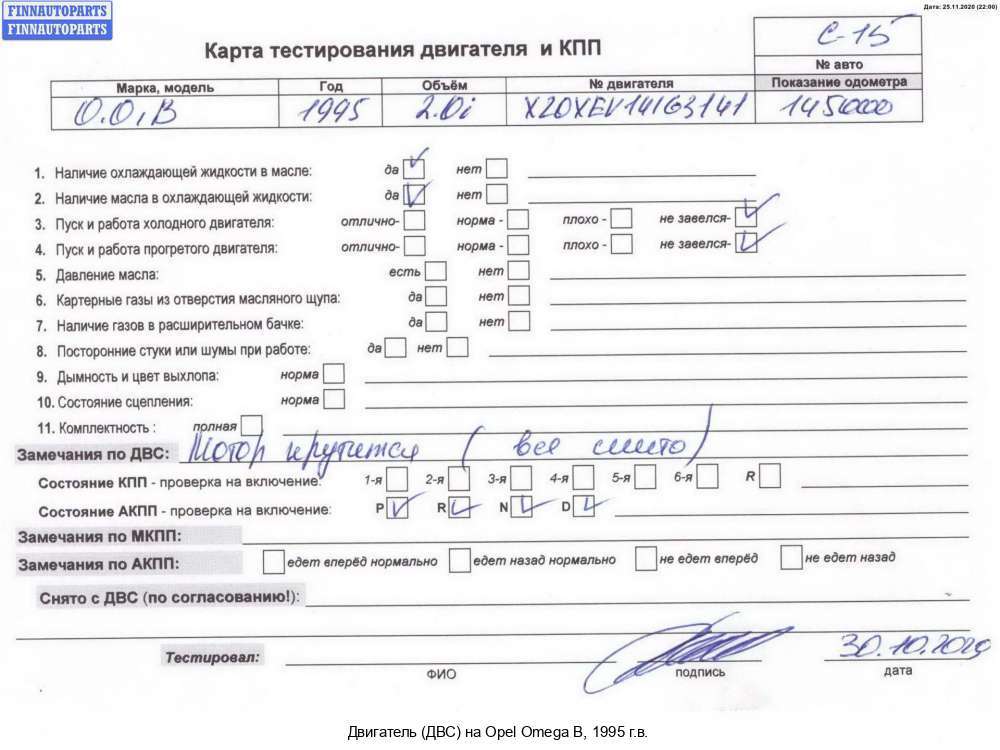 FINNAUTOPARTS
FINNAUTOPARTS
Дата: 25.11.2020 (22:00)
Карта тестирования двигателя и КПП
С-15
№ авто
Марка, модель Год Объём № двигателя Показание одометра
О.О,В 1995 2.0i X20XEV14163141
1. Наличие охлаждающей жидкости в масле: да нет
2. Наличие масла в охлаждающей жидкости: да нет
3. Пуск и работа холодного двигателя: отлично- норма - плохо - не завелся-
4. Пуск и работа прогретого двигателя: отлично- норма - плохо - не завелся-
5. Давление масла: есть нет
6. Картерные газы из отверстия масляного щупа: да нет
7. Наличие газов в расширительном бачке: да нет
8. Посторонние стуки или шумы при работе: да нет
9. Дымность и цвет выхлопа: норма
10. Состояние сцепления: норма
11. Комплектность : полная
Замечания по ДВС: Мотор крутится ( все снято)
Состояние КПП - проверка на включение: 1-я 2-я 3-я 4-я 5-я 6-я R
Состояние АКПП - проверка на включение: P R N D
Замечания по МКПП:
Замечания по АКПП: едет вперёд нормально едет назад нормально не едет вперёд не едет назад
Снято с ДВС (по согласованию!):
Тестировал: 30.10.2020
ФИО подпись дата
Двигатель (ДВС) на Opel Omega B, 1995 г.в.